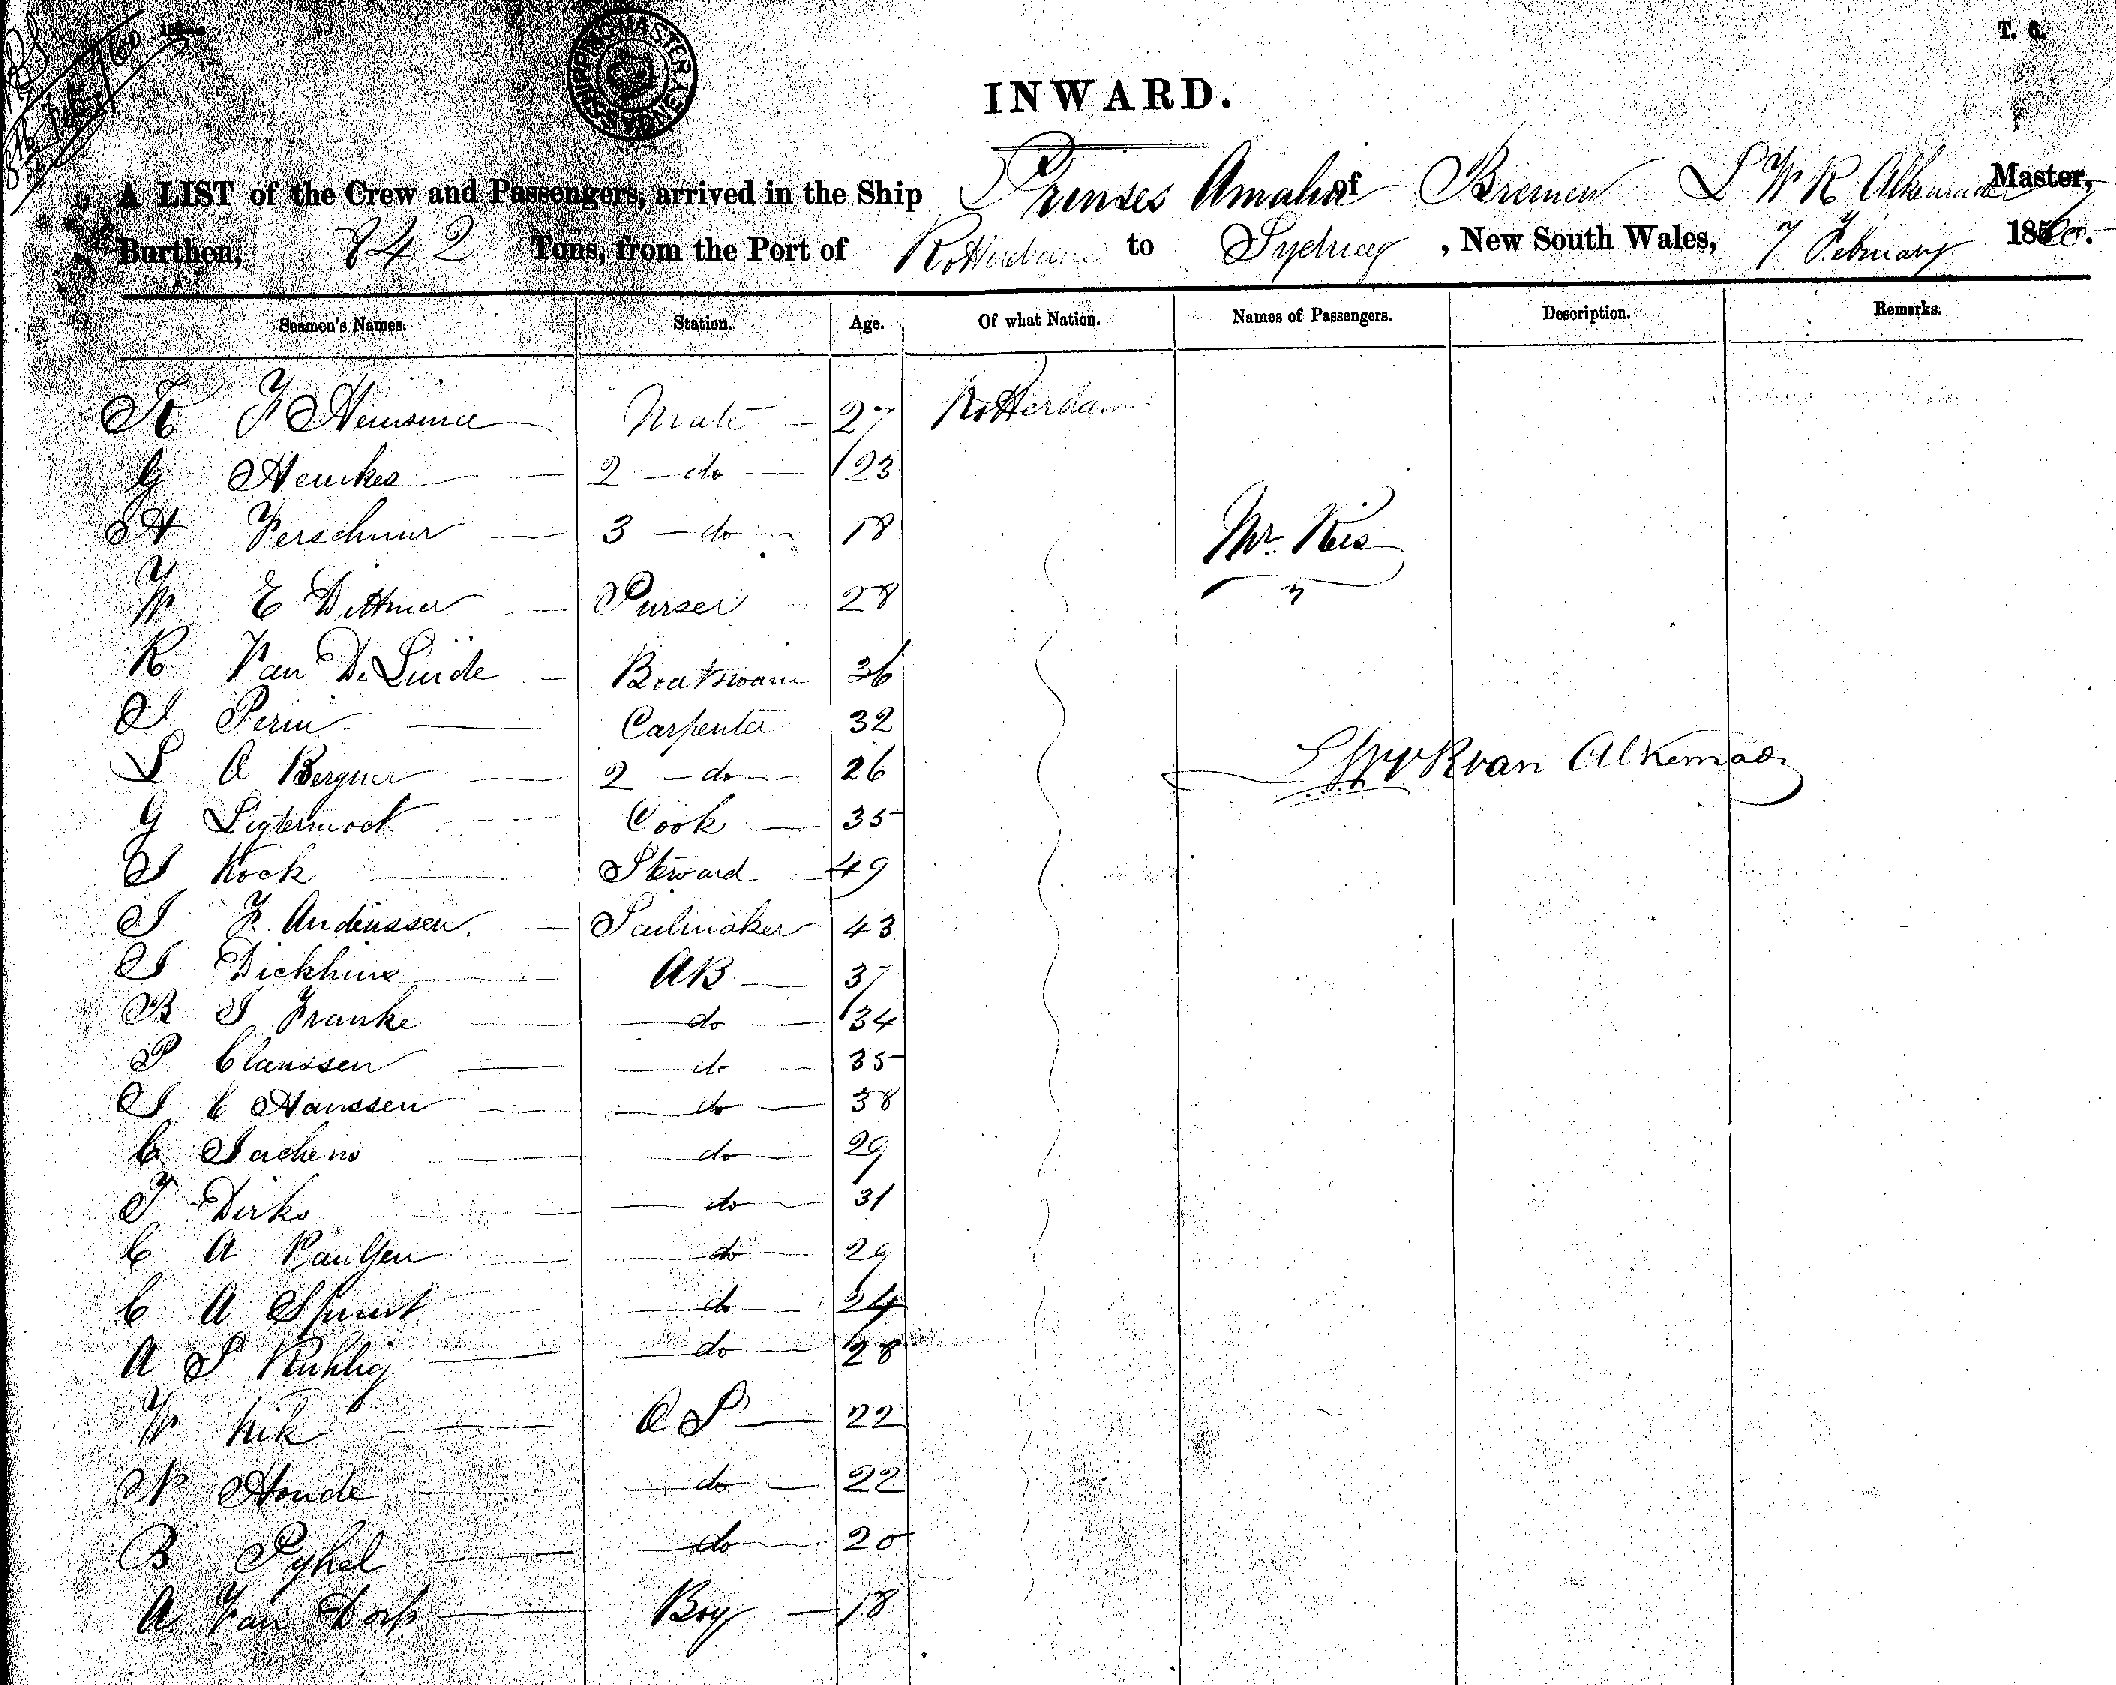 T. 6.
SHIPPING MASTER SYDNEY
INWARD.
A LIST of the Crew and Passengers, arrived in the Ship Prinses Amalia of Bremen L W R Alkemade Master,
Burthen, 742 Tons, from the Port of Rotterdam to Sydney, New South Wales, 7 February 1860.
Seamen's Names. Station. Age. Of what Nation. Names of Passengers. Description. Remarks.
Mate 27 Rotterdam
G Henkes 2 do 23
Verschuur 3 do 18
Mr. Kies
W E Dittmer Purser 28
R Van De Linde Boatswain 36
J Perin Carpenter 32
L van Alkemade
L A Bergner 2 do 26
G Cook 35
J Kock Steward 49
J F Andreassen Sailmaker 43
J AB 37
B J Franke do 34
P Claussen do 35
J C Hanssen do 38
C do 29
J Dirks do 31
C A Paulsen do 29
C A do 24
A P Ruhlig do 28
W Kik OS 22
N Honde do 22
B Pyhel do 20
A Van Dorp Boy 18